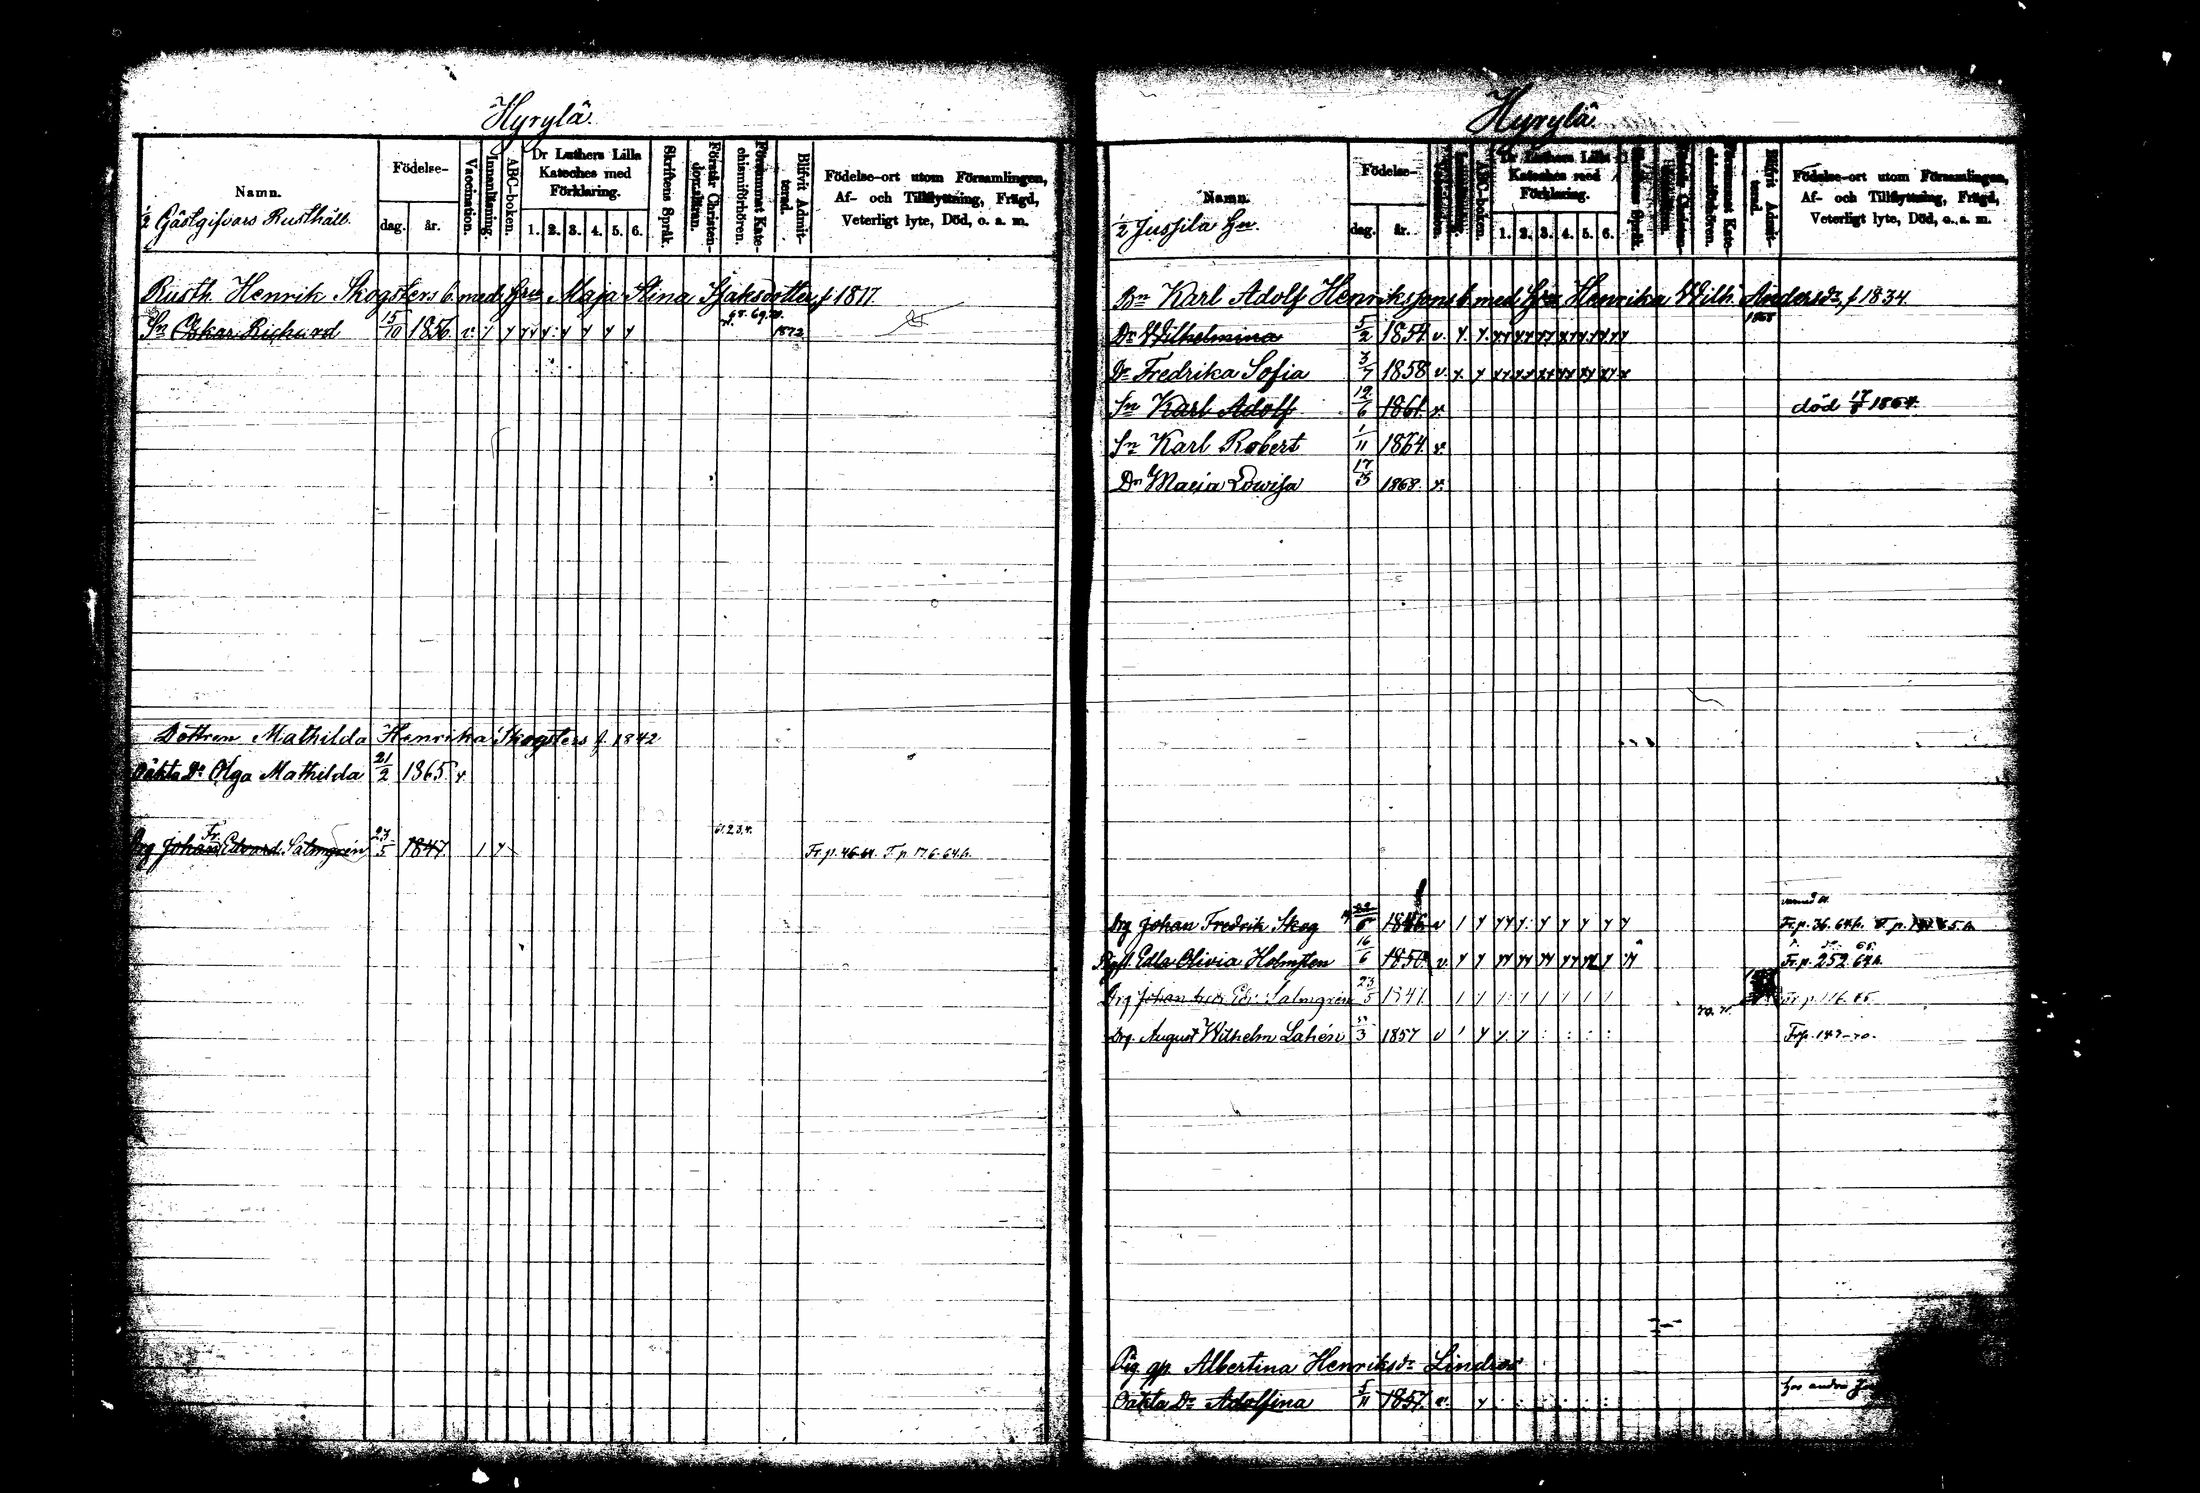 Hyrylä.
Namn.
½ Gästgifvars Rusthåll.
Födelse-
dag. år.
Vaccination.
Innanläsning.
ABC-boken.
Dr Luthers Lilla Kateches med Förklaring.
1. 2. 3. 4. 5. 6.
Skriftens Språk.
Förstår Christendomsläran.
Försummat Katechismiförhören.
Blifvit Admitterad.
Födelse-ort utom Församlingen,
Af- och Tillflyttning, Frägd,
Veterligt lyte, Död, o. a. m.
Rusth. Henrik Skogsters b. med Maja Stina Isaksdotter f 1817.
Sn Oskar Richard 15/10 1856. v. 68. 69. 70. 1872
Dottren Mathilda Henrika Skogsters f. 1842
Oäkta Dr Olga Mathilda 21/2 1865 v.
Drg Johan Fr. Edvard Salmgren 23/5 1847 61.2.3.4. Fr. p. 46-64. T. p 176-64.
Hyrylä
Namn.
½ Jussila Hn.
Födelse-
dag. år.
ABC-boken.
Dr Luthers Lilla Kateches med Förklaring.
1. 2. 3. 4. 5. 6.
Skriftens Språk.
Försummat Katechismiförhören.
Blifvit Admitterad.
Födelse-ort utom Församlingen,
Af- och Tillflyttning, Frägd,
Veterligt lyte, Död, o. a. m.
Bn Karl Adolf Henrikssons b. med Henrika Wilh. Andersdr, f 1834.
Dr Wilhelmina 5/2 1854 v. 1868
Dr Fredrika Sofia 3/7 1858 v.
Sn Karl Adolf 12/6 1861. v. död 17/8 1864.
Sn Karl Robert 1/11 1864. v.
Dr Maria Lowisa 17/5 1868. v.
Drg Johan Fredrik Skog 22/5 1846 v Fr. p. 36. 64.
Pig. Edla Olivia Holmsten 16/6 1850. v. Fr. p. 252. 64
Drg Johan Edv. Salmgren 23/5 1847
Drg. August Wilhelm Lahén 3 1857 v Fr p. 147-70.
Pig. Albertina Henriksdr
Oäkta Dr Adolfina 5/11 1857. v.